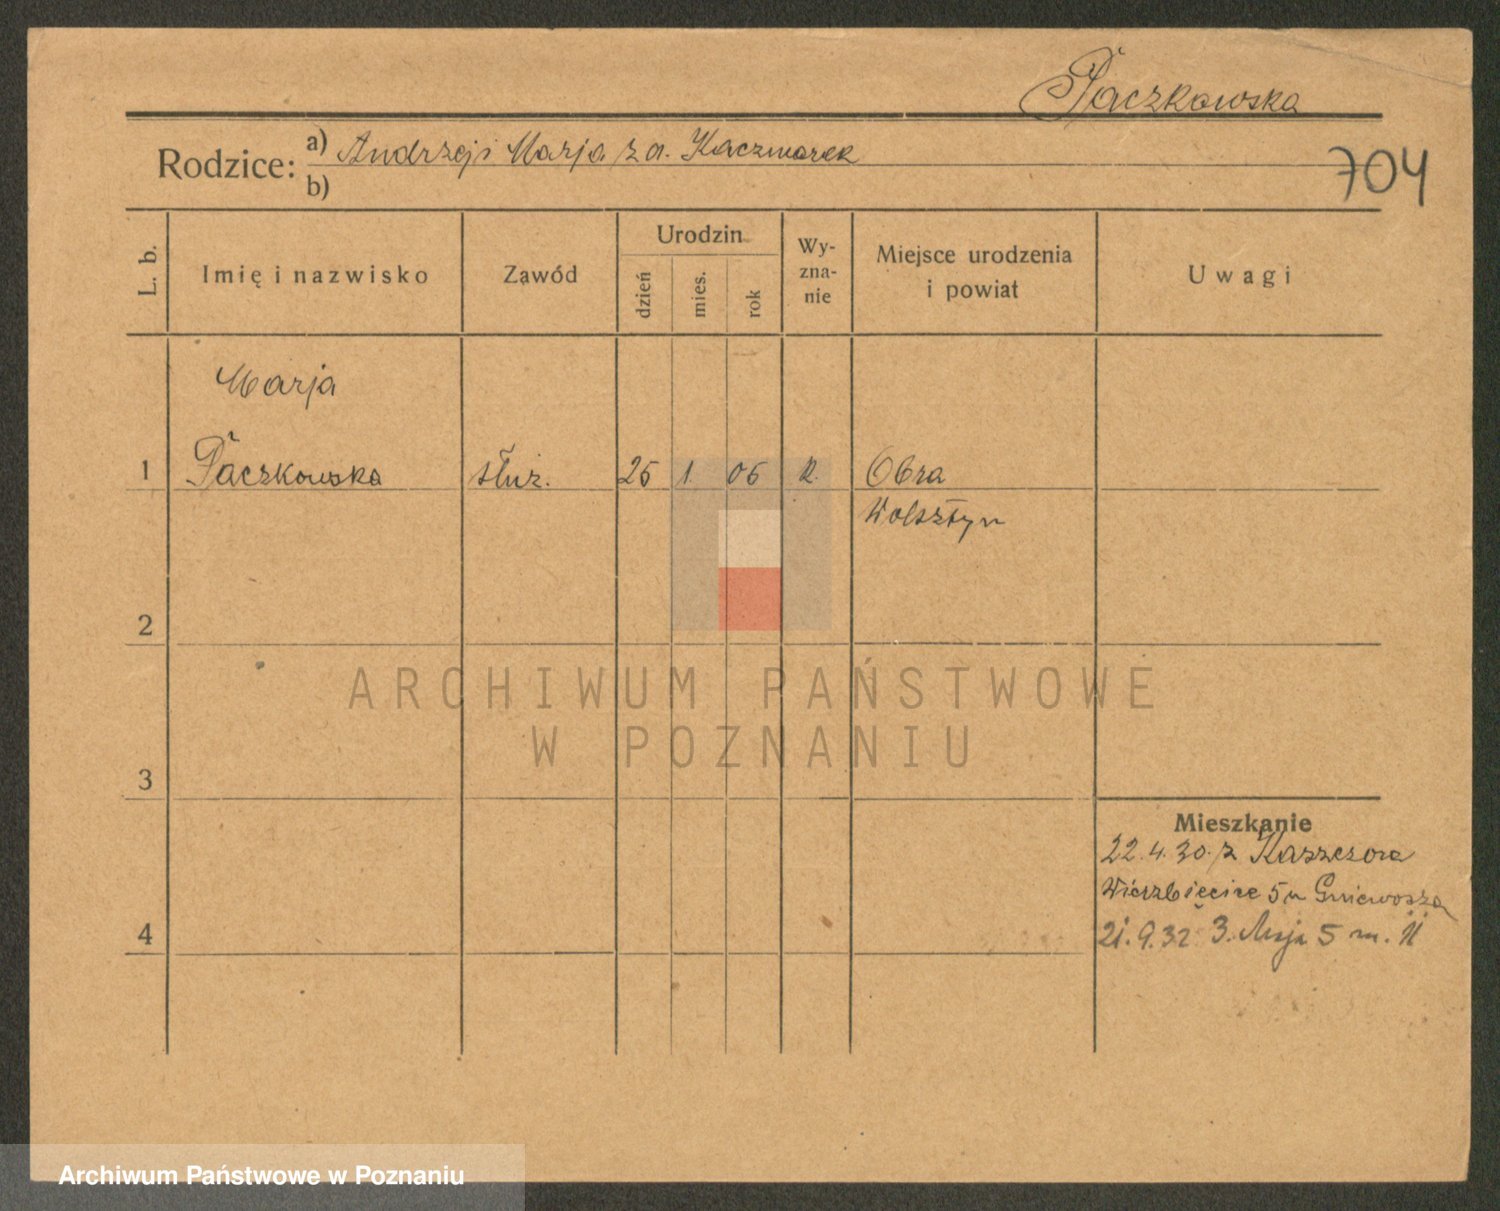 Paczkowska
Rodzice: a) Andrzej i Marja z d. Kaczmarek
b)
704
L. b.
Imię i nazwisko
Zawód
Urodzin
dzień
mies.
rok
Wy-
zna-
nie
Miejsce urodzenia
i powiat
Uwagi
Marja
1 Paczkowska służ. 25 1. 06 R. Obra
Wolsztyn
2
ARCHIWUM PAŃSTWOWE
W POZNANIU
3
Mieszkanie
22.4.30. z Kaszczora
Wierzbięcice 5 u Gniewosza
4
21.9.32 3. Maja 5 m. 11
Archiwum Państwowe w Poznaniu